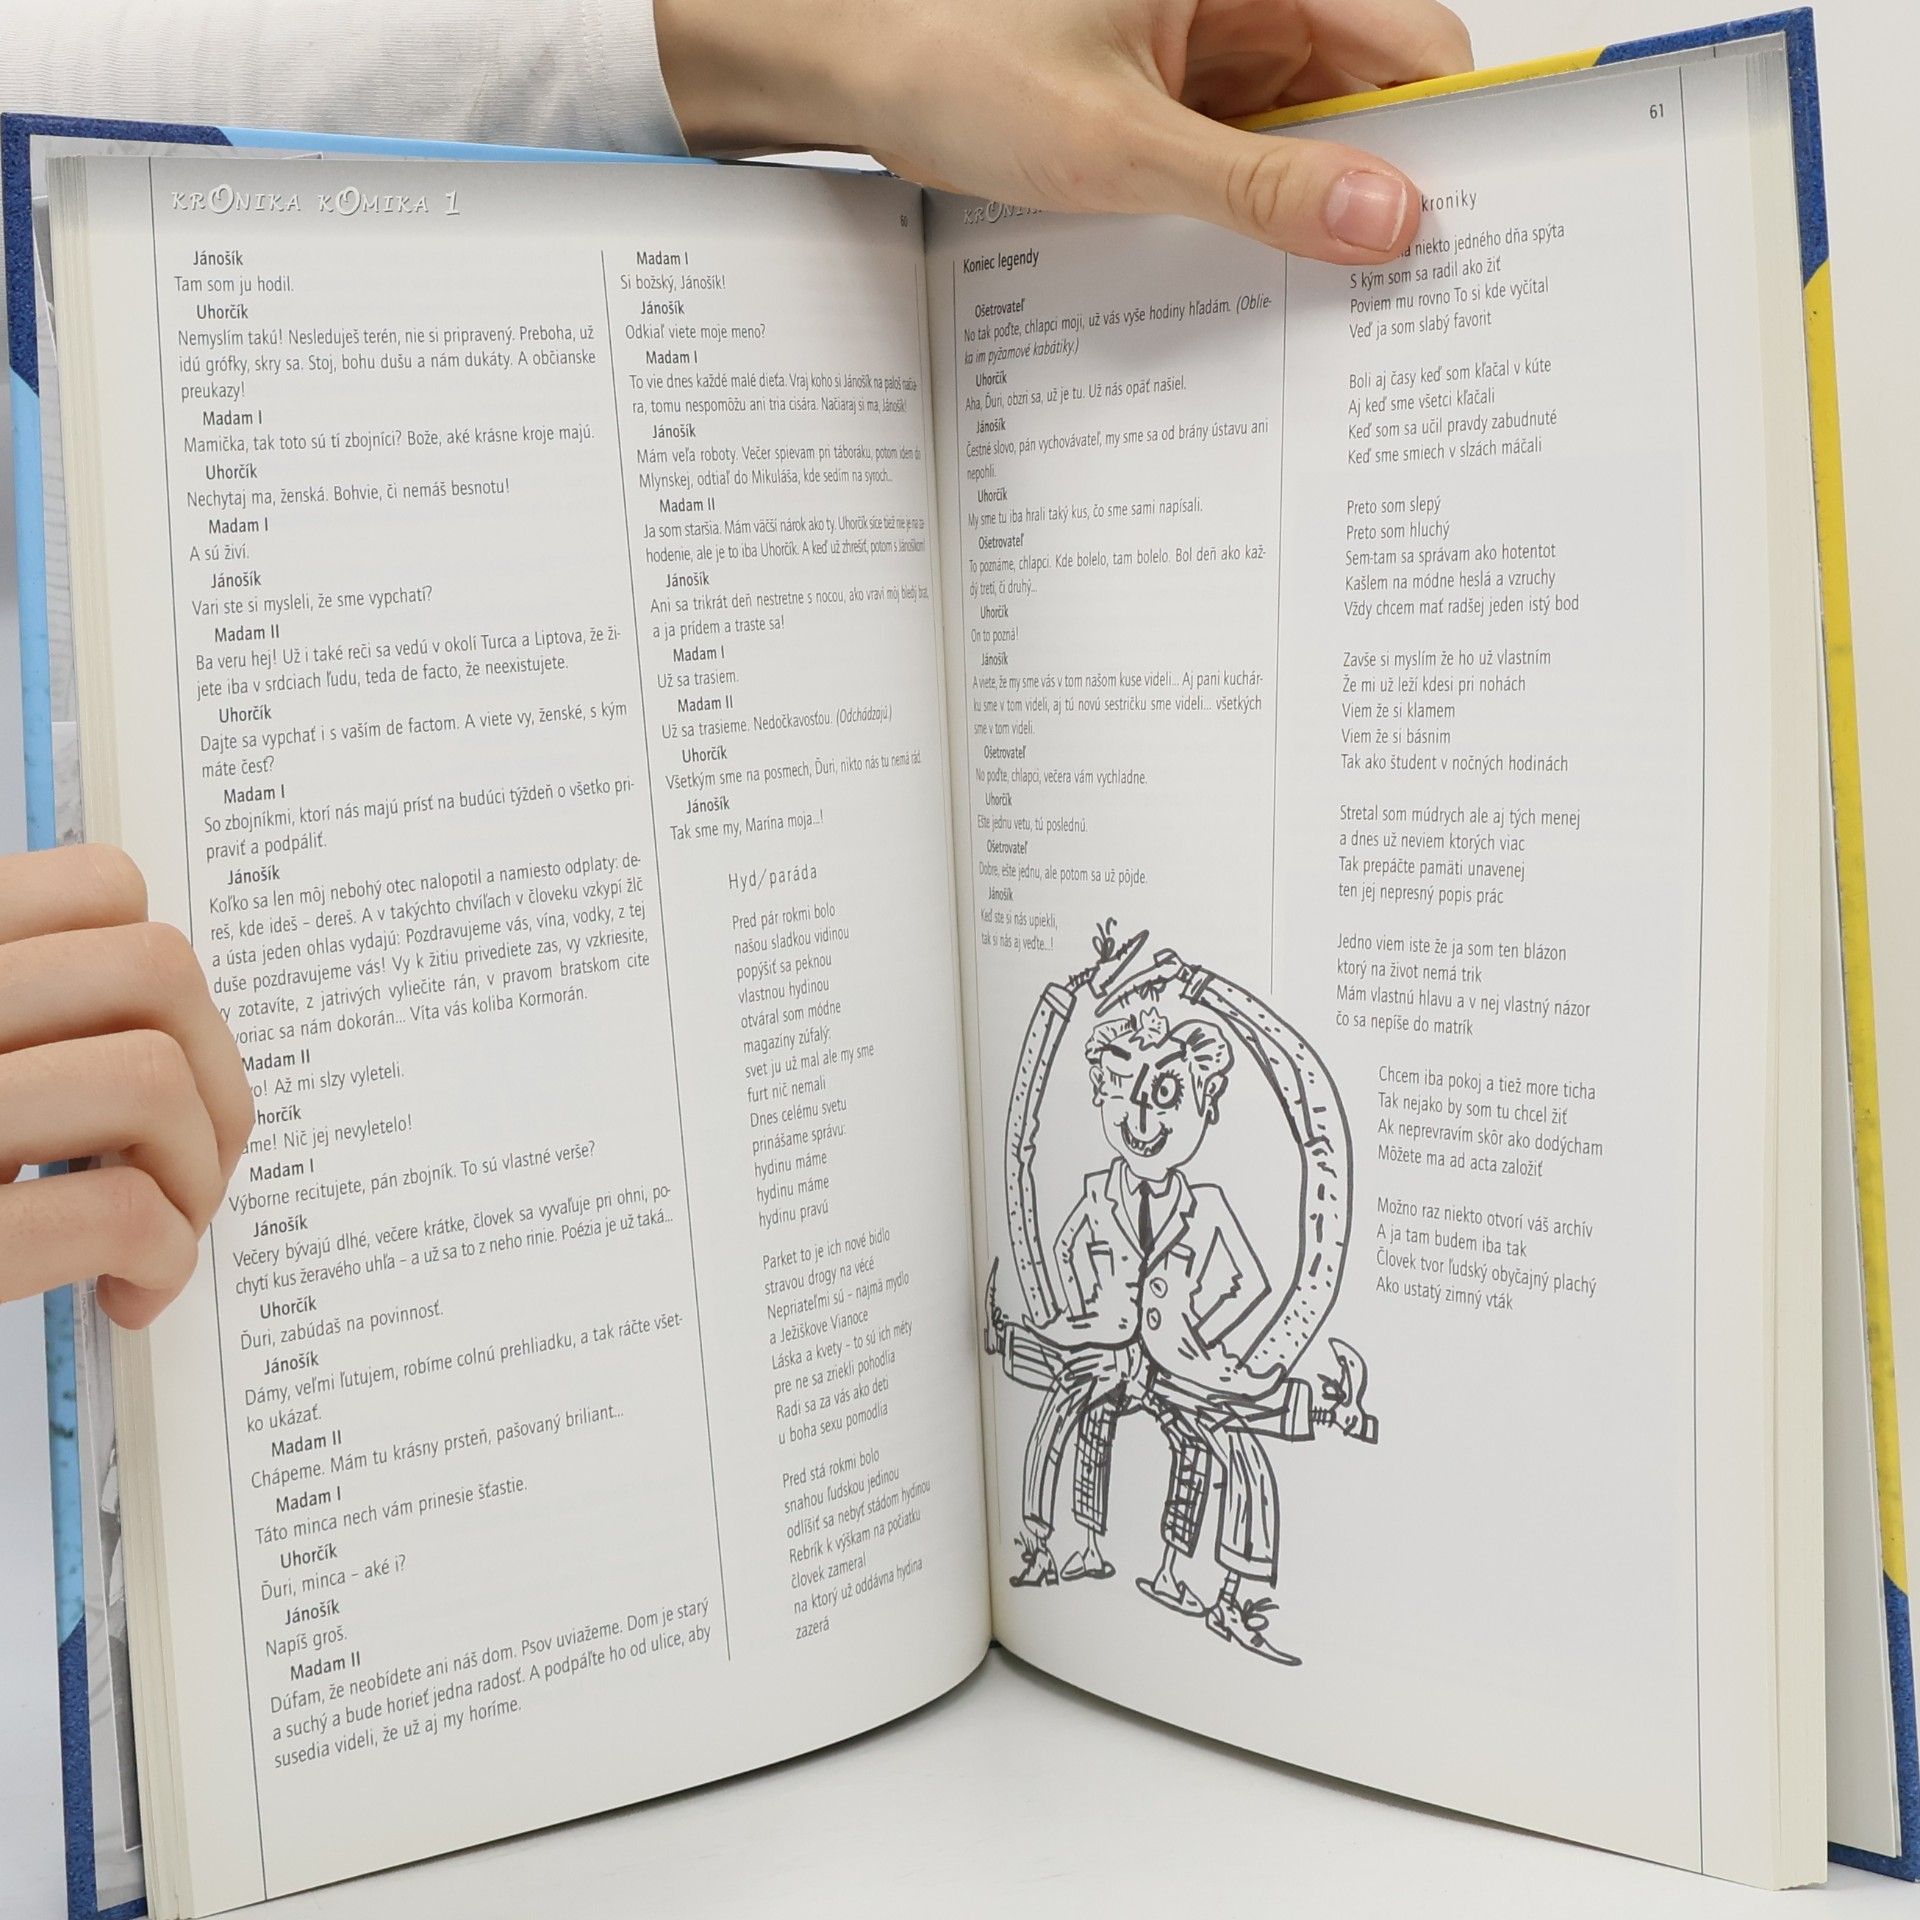 KRONIKA KOMIKA 1
60
Jánošík
Tam som ju hodil.
Uhorčík
Nemyslím takú! Nesleduješ terén, nie si pripravený. Preboha, už
idú grófky, skry sa. Stoj, bohu dušu a nám dukáty. A občianske
preukazy!
Madam I
Mamička, tak toto sú tí zbojníci? Bože, aké krásne kroje majú.
Uhorčík
Nechytaj ma, ženská. Bohvie, či nemáš besnotu!
Madam I
A sú živí.
Jánošík
Vari ste si mysleli, že sme vypchatí?
Madam II
Ba veru hej! Už i také reči sa vedú v okolí Turca a Liptova, že ži-
jete iba v srdciach ľudu, teda de facto, že neexistujete.
Uhorčík
Dajte sa vypchať i s vaším de factom. A viete vy, ženské, s kým
máte česť?
Madam I
So zbojníkmi, ktorí nás majú prísť na budúci týždeň o všetko pri-
praviť a podpáliť.
Jánošík
Koľko sa len môj nebohý otec nalopotil a namiesto odplaty: de-
reš, kde ideš – dereš. A v takýchto chvíľach v človeku vzkypí žlč
a ústa jeden ohlas vydajú: Pozdravujeme vás, vína, vodky, z tej
duše pozdravujeme vás! Vy k žitiu privediete zas, vy vzkriesite,
vy zotavíte, z jatrivých vyliečite rán, v pravom bratskom cite
voriac sa nám dokorán... Víta vás koliba Kormorán.
Madam II
vo! Až mi slzy vyleteli.
horčík
ame! Nič jej nevyletelo!
Madam I
Výborne recitujete, pán zbojník. To sú vlastné verše?
Jánošík
Večery bývajú dlhé, večere krátke, človek sa vyvaľuje pri ohni, po-
chytí kus žeravého uhľa – a už sa to z neho rinie. Poézia je už taká...
Uhorčík
Ďuri, zabúdaš na povinnosť.
Jánošík
Dámy, veľmi ľutujem, robíme colnú prehliadku, a tak ráčte všet-
ko ukázať.
Madam II
Chápeme. Mám tu krásny prsteň, pašovaný briliant...
Madam I
Táto minca nech vám prinesie šťastie.
Uhorčík
Ďuri, minca – aké i?
Jánošík
Napíš groš.
Madam II
Dúfam, že neobídete ani náš dom. Psov uviažeme. Dom je starý
a suchý a bude horieť jedna radosť. A podpáľte ho od ulice, aby
susedia videli, že už aj my horíme.
Madam I
Si božský, Jánošík!
Jánošík
Odkiaľ viete moje meno?
Madam I
To vie dnes každé malé dieťa. Vraj koho si Jánošík na paloš načia-
ra, tomu nespomôžu ani tria cisára. Načiaraj si ma, Jánošík!
Jánošík
Mám veľa roboty. Večer spievam pri táboráku, potom idem do
Mlynskej, odtiaľ do Mikuláša, kde sedím na syroch...
Madam II
Ja som staršia. Mám väčší nárok ako ty. Uhorčík síce tiež nie je na za-
hodenie, ale je to iba Uhorčík. A keď už zhrešiť, potom s Jánošíkom!
Jánošík
Ani sa trikrát deň nestretne s nocou, ako vraví môj bledý brat,
a ja prídem a traste sa!
Madam I
Už sa trasiem.
Madam II
Už sa trasieme. Nedočkavosťou. (Odchádzajú.)
Uhorčík
Všetkým sme na posmech, Ďuri, nikto nás tu nemá rád.
Jánošík
Tak sme my, Marína moja...!
Hyd/paráda
Pred pár rokmi bolo
našou sladkou vidinou
popýšiť sa peknou
vlastnou hydinou
otváral som módne
magazíny zúfalý:
svet ju už mal ale my sme
furt nič nemali
Dnes celému svetu
prinášame správu:
hydinu máme
hydinu máme
hydinu pravú
Parket to je ich nové bidlo
stravou drogy na vécé
Nepriateľmi sú – najmä mydlo
a Ježiškove Vianoce
Láska a kvety – to sú ich méty
pre ne sa zriekli pohodlia
Radi sa za vás ako deti
u boha sexu pomodlia
Pred stá rokmi bolo
snahou ľudskou jedinou
odlíšiť sa nebyť stádom hydinou
Rebrík k výškam na počiatku
človek zameral
na ktorý už oddávna hydina
zazerá
61
Koniec legendy
Ošetrovateľ
No tak poďte, chlapci moji, už vás vyše hodiny hľadám. (Oblie-
ka im pyžamové kabátiky.)
Uhorčík
Aha, Ďuri, obzri sa, už je tu. Už nás opäť našiel.
Jánošík
Čestné slovo, pán vychovávateľ, my sme sa od brány ústavu ani
nepohli.
Uhorčík
My sme tu iba hrali taký kus, čo sme sami napísali.
Ošetrovateľ
To poznáme, chlapci. Kde bolelo, tam bolelo. Bol deň ako kaž-
dý tretí, či druhý...
Uhorčík
On to pozná!
Jánošík
A viete, že my sme vás v tom našom kuse videli... Aj pani kuchár-
ku sme v tom videli, aj tú novú sestričku sme videli... všetkých
sme v tom videli.
Ošetrovateľ
No poďte, chlapci, večera vám vychladne.
Uhorčík
Ešte jednu vetu, tú poslednú.
Ošetrovateľ
Dobre, ešte jednu, ale potom sa už pôjde.
Jánošík
Keď ste si nás upiekli,
tak si nás aj veďte...!
kroniky
niekto jedného dňa spýta
S kým som sa radil ako žiť
Poviem mu rovno To si kde vyčítal
Veď ja som slabý favorit
Boli aj časy keď som kľačal v kúte
Aj keď sme všetci kľačali
Keď som sa učil pravdy zabudnuté
Keď sme smiech v slzách máčali
Preto som slepý
Preto som hluchý
Sem-tam sa správam ako hotentot
Kašlem na módne heslá a vzruchy
Vždy chcem mať radšej jeden istý bod
Zavše si myslím že ho už vlastním
Že mi už leží kdesi pri nohách
Viem že si klamem
Viem že si básnim
Tak ako študent v nočných hodinách
Stretal som múdrych ale aj tých menej
a dnes už neviem ktorých viac
Tak prepáčte pamäti unavenej
ten jej nepresný popis prác
Jedno viem iste že ja som ten blázon
ktorý na život nemá trik
Mám vlastnú hlavu a v nej vlastný názor
čo sa nepíše do matrík
Chcem iba pokoj a tiež more ticha
Tak nejako by som tu chcel žiť
Ak neprevravím skôr ako dodýcham
Môžete ma ad acta založiť
Možno raz niekto otvorí váš archív
A ja tam budem iba tak
Človek tvor ľudský obyčajný plachý
Ako ustatý zimný vták